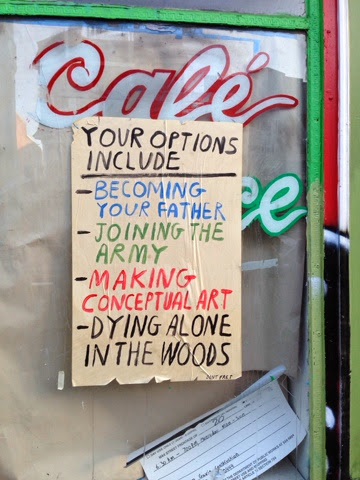 Café
YOUR OPTIONS
INCLUDE
- BECOMING
YOUR FATHER
- JOINING THE
ARMY
- MAKING
CONCEPTUAL ART
- DYING ALONE
IN THE WOODS
ee